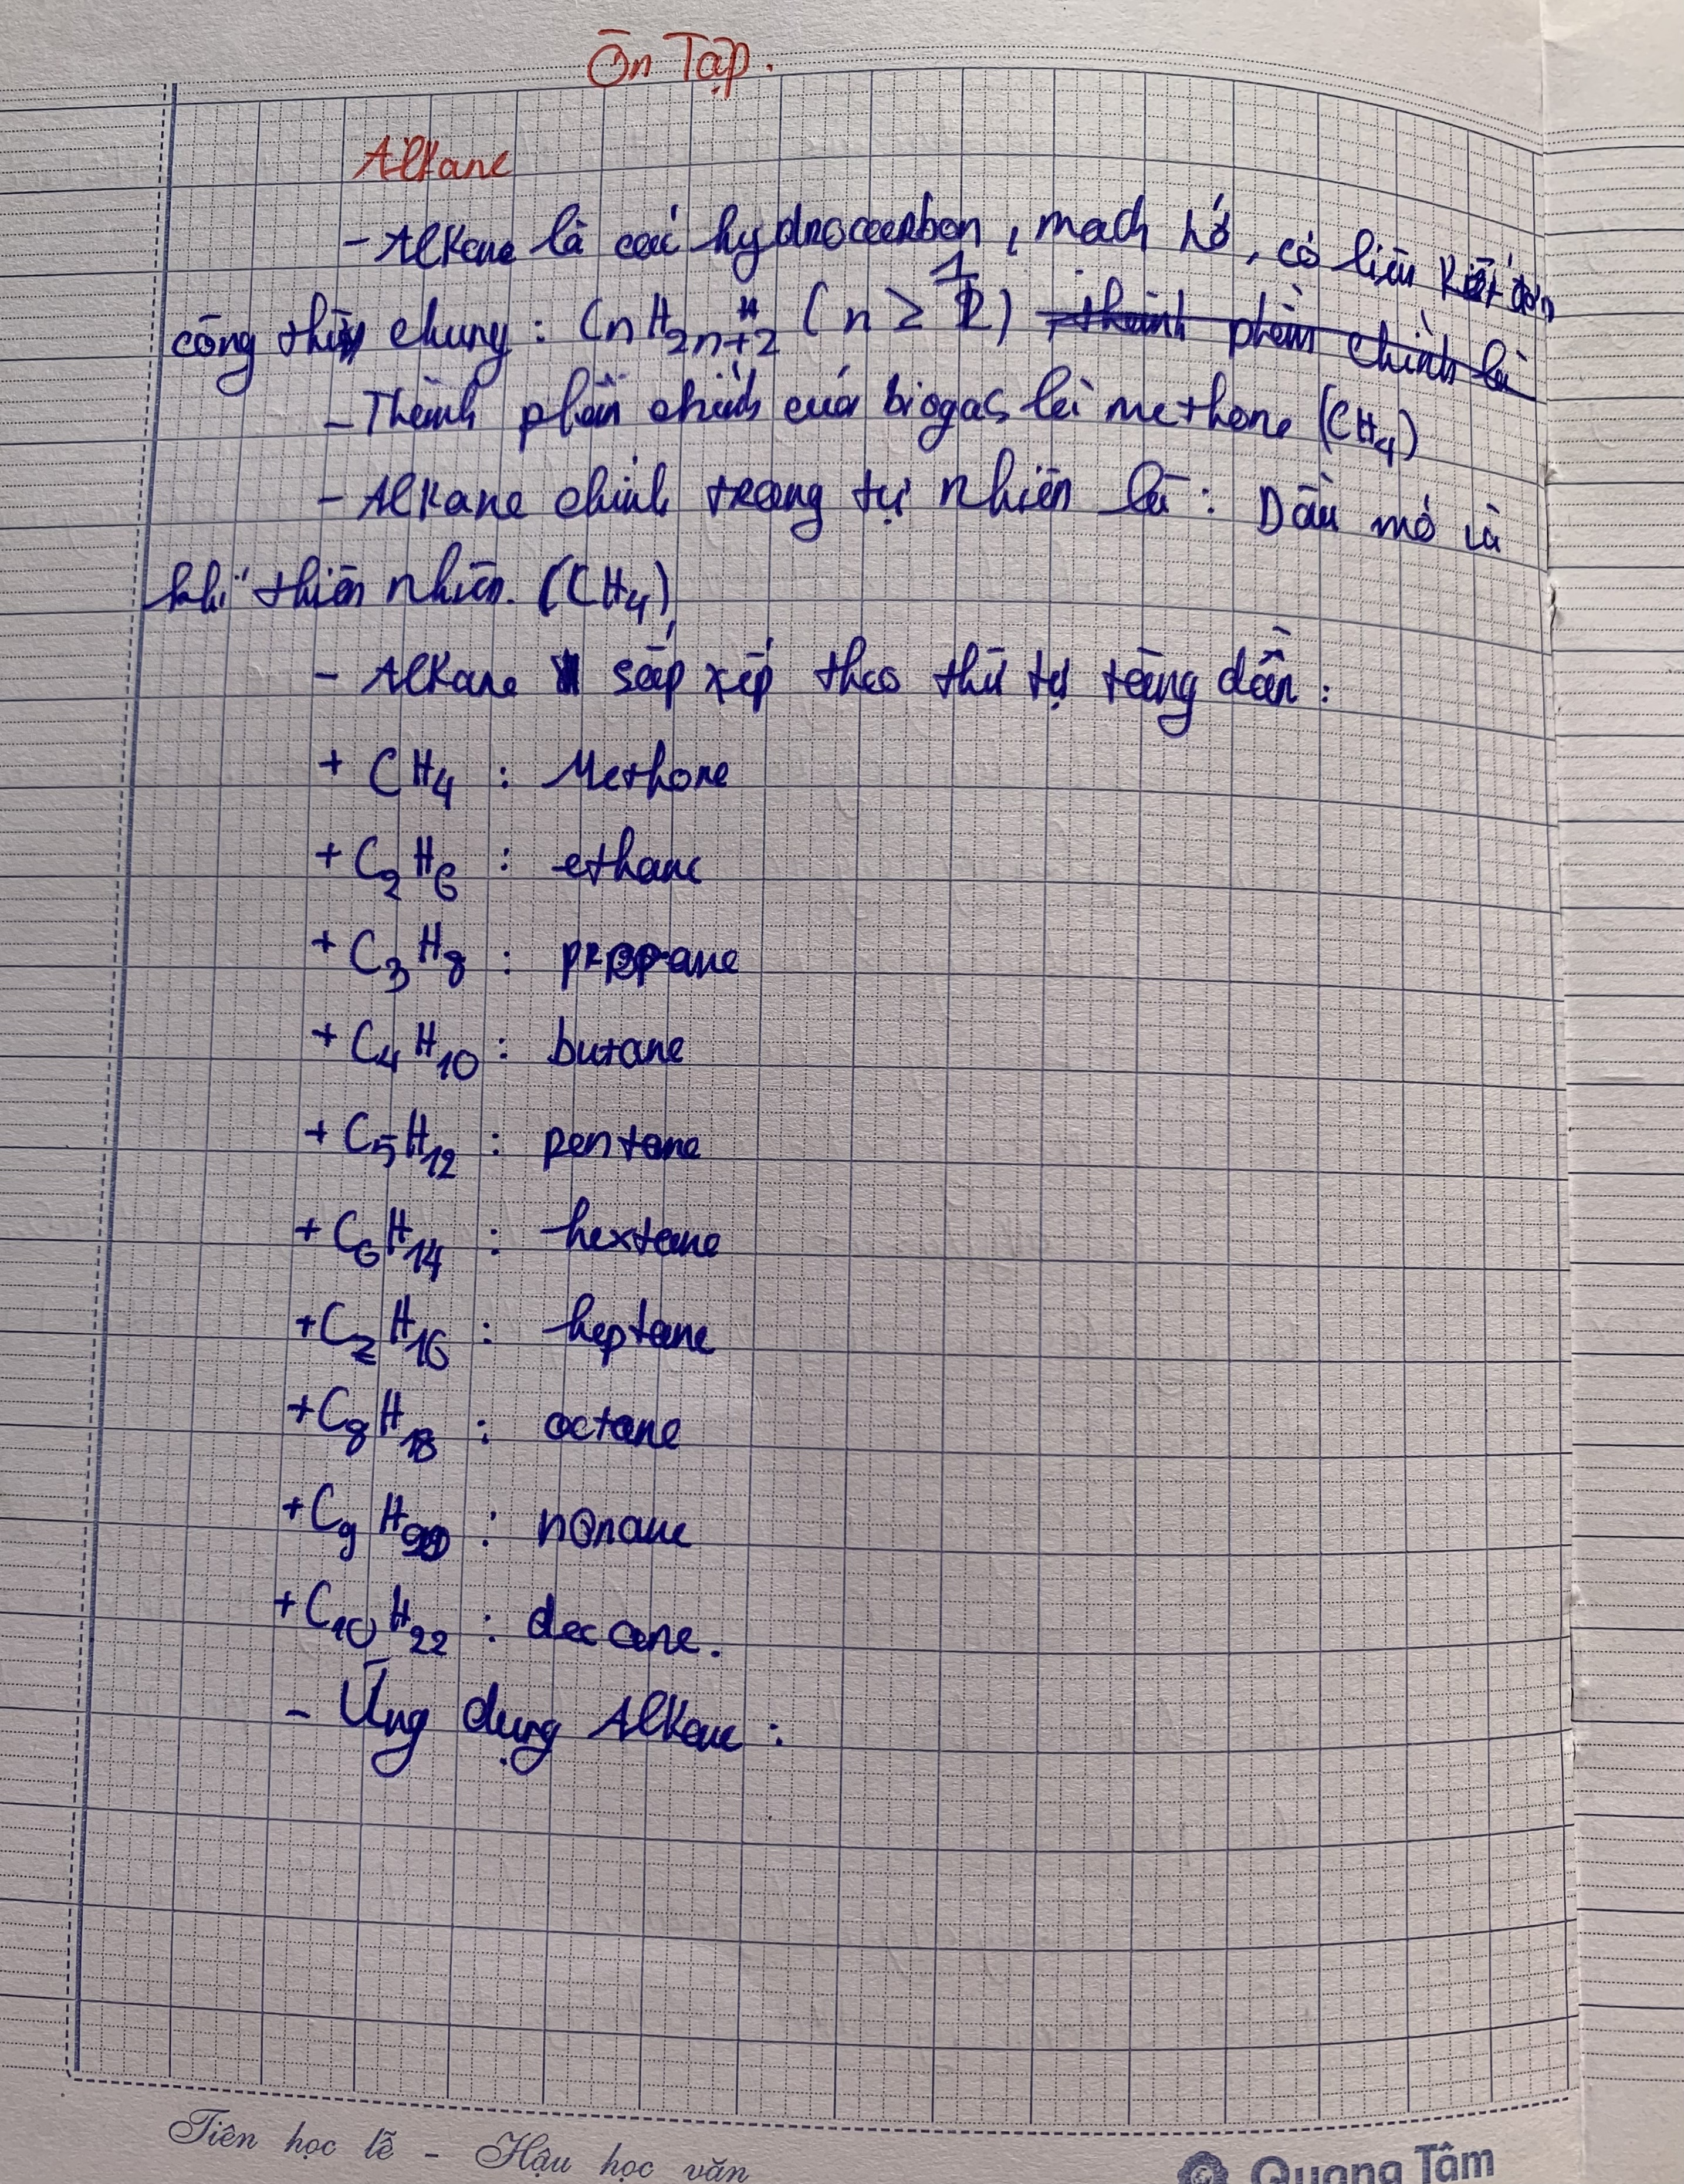 Ôn Tập.
Alkane
- Alkane là các hydrocacrbon, mạch hở, có liên kết đơn
công thức chung: CnH2n+2 (n ≥ 1) thành phần chính là
- Thành phần chính của biogas là methane (CH4)
- Alkane chính trong tự nhiên là: Dầu mỏ và
khí thiên nhiên. (CH4)
- Alkane sắp xếp theo thứ tự tăng dần:
+ CH4 : Methane
+ C2H6 : ethane
+ C3H8 : propane
+ C4H10 : butane
+ C5H12 : pentane
+ C6H14 : hextane
+ C7H16 : heptane
+ C8H18 : octane
+ C9H20 : nonane
+ C10H22 : decane.
- Ứng dụng Alkane :
Tiên học lễ - Hậu học văn
Quang Tâm